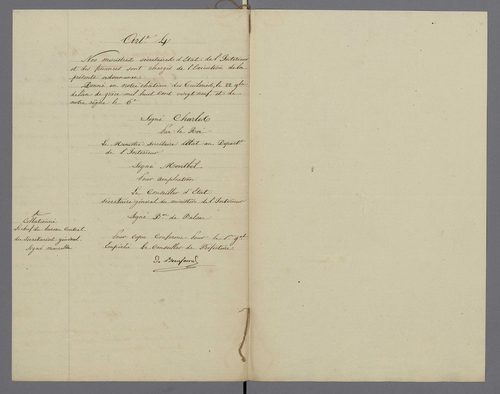 Art. 4
Nos ministres secretaires d'Etat de l'Intérieur
et des finances sont chargés de l'Exécution de la
présente ordonnance.
Donné en notre château des Tuileries, le 22
de l'an de grace mil huit cent vingt neuf et de
notre règne le 6e
Signé Charles
Par le Roi
Le Ministre Secrétaire d'Etat au Départ.
de l'Intérieur
Signé Montbel
Pour ampliation
Le Conseiller d'Etat
secrétaire général du ministère de l'Intérieur
Signé de
Pour copie Conforme Pour le
Empêché Le Conseiller de Préfecture
Collationné
Le chef du bureau Central
du Secrétariat général
Signé